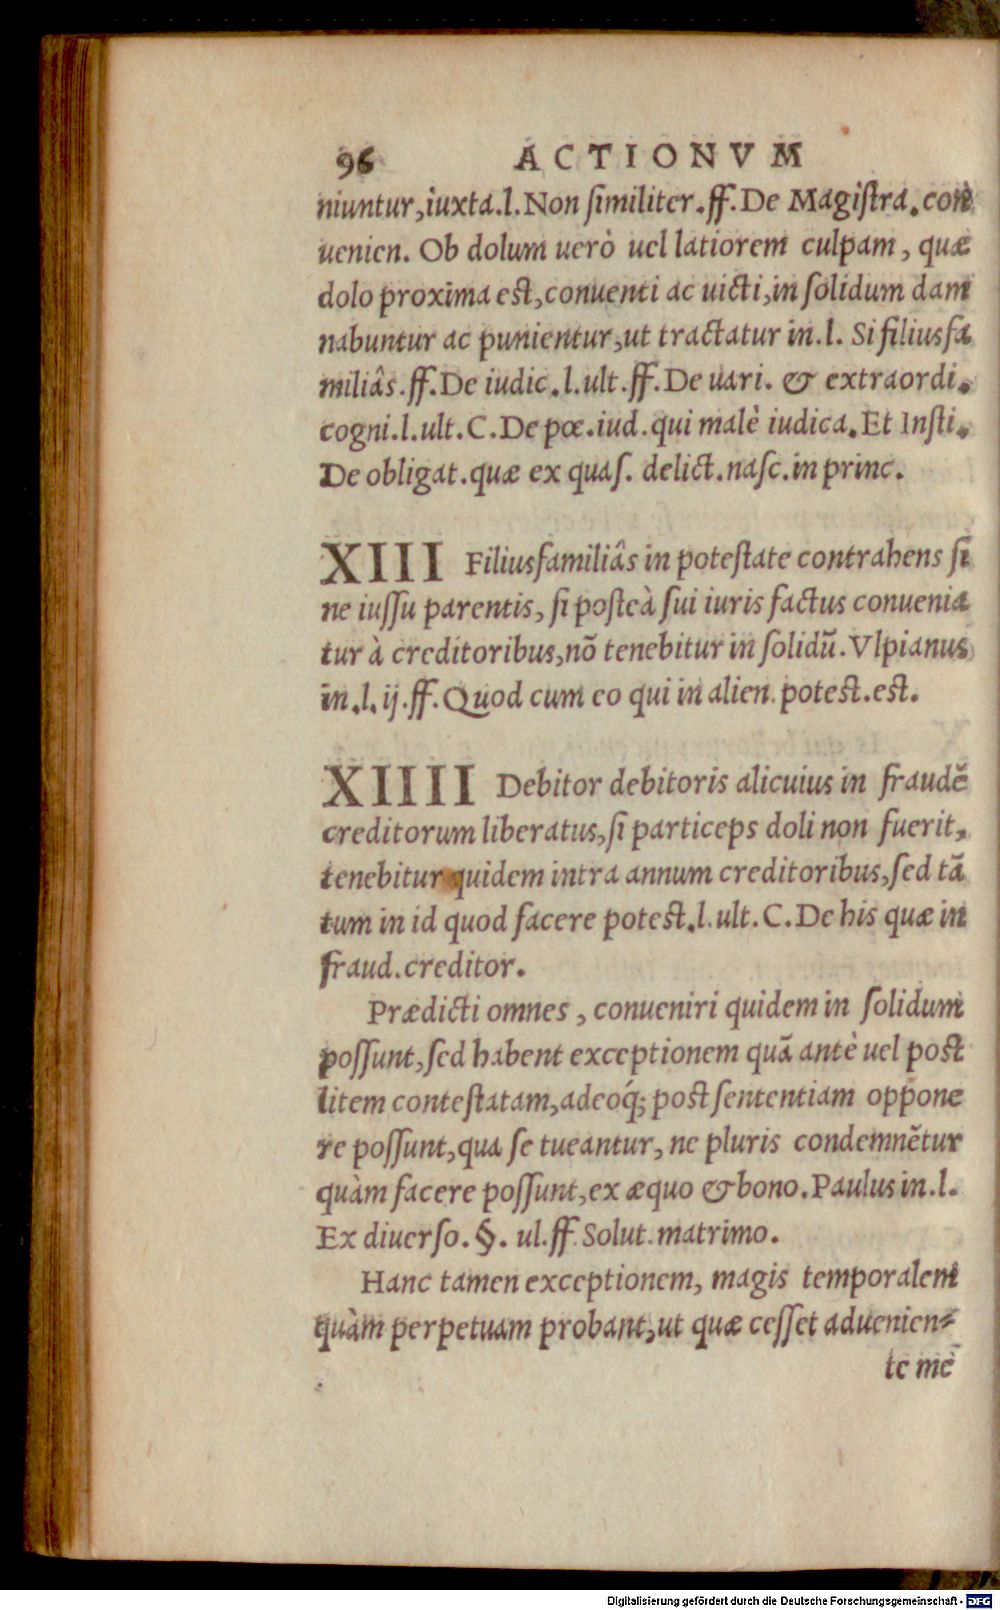 96 ACTIONVM
niuntur, iuxta.l. Non similiter.ff. De Magistra. con
uenien. Ob dolum uerò uel latiorem culpam, quæ
dolo proxima est, conuenti ac uicti, in solidum dam
nabuntur ac punientur, ut tractatur in.l. Si filiusfa
miliâs.ff. De iudic.l.ult.ff. De uari. & extraordi.
cogni.l.ult. C. De pœ. iud. qui malè iudica. Et Insti.
De obligat. quæ ex quas. delict. nasc. in princ.
XIII Filiusfamiliâs in potestate contrahens si
ne iussu parentis, si posteà sui iuris factus conuenia
tur à creditoribus, nõ tenebitur in solidũ. Vlpianus
in.l. ij.ff. Quod cum eo qui in alien. potest. est.
XIIII Debitor debitoris alicuius in fraudẽ
creditorum liberatus, si particeps doli non fuerit,
tenebitur quidem intra annum creditoribus, sed tã
tum in id quod facere potest.l. ult. C. De his quæ in
fraud. creditor.
Prædicti omnes, conueniri quidem in solidum
possunt, sed habent exceptionem quã antè uel post
litem contestatam, adeoq́; post sententiam oppone
re possunt, qua se tueantur, ne pluris condemnẽtur
quàm facere possunt, ex æquo & bono. Paulus in.l.
Ex diuerso. §. ul.ff. Solut. matrimo.
Hanc tamen exceptionem, magis temporalem
quàm perpetuam probant, ut quæ cesset aduenien-
te mẽ
Digitalisierung gefördert durch die Deutsche Forschungsgemeinschaft - DFG